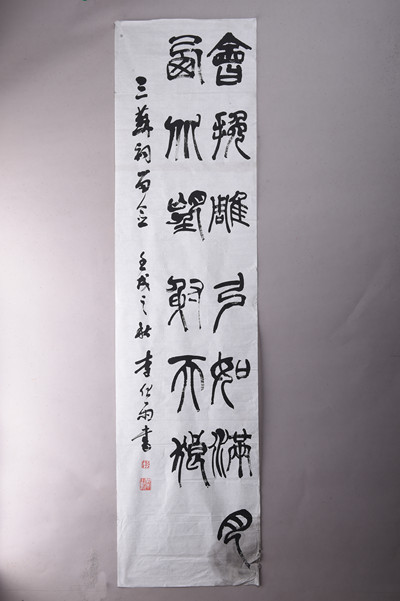 會挽雕弓如滿月
西北望射天狼
三蘇祠留念 壬戌之秋 李 雨書